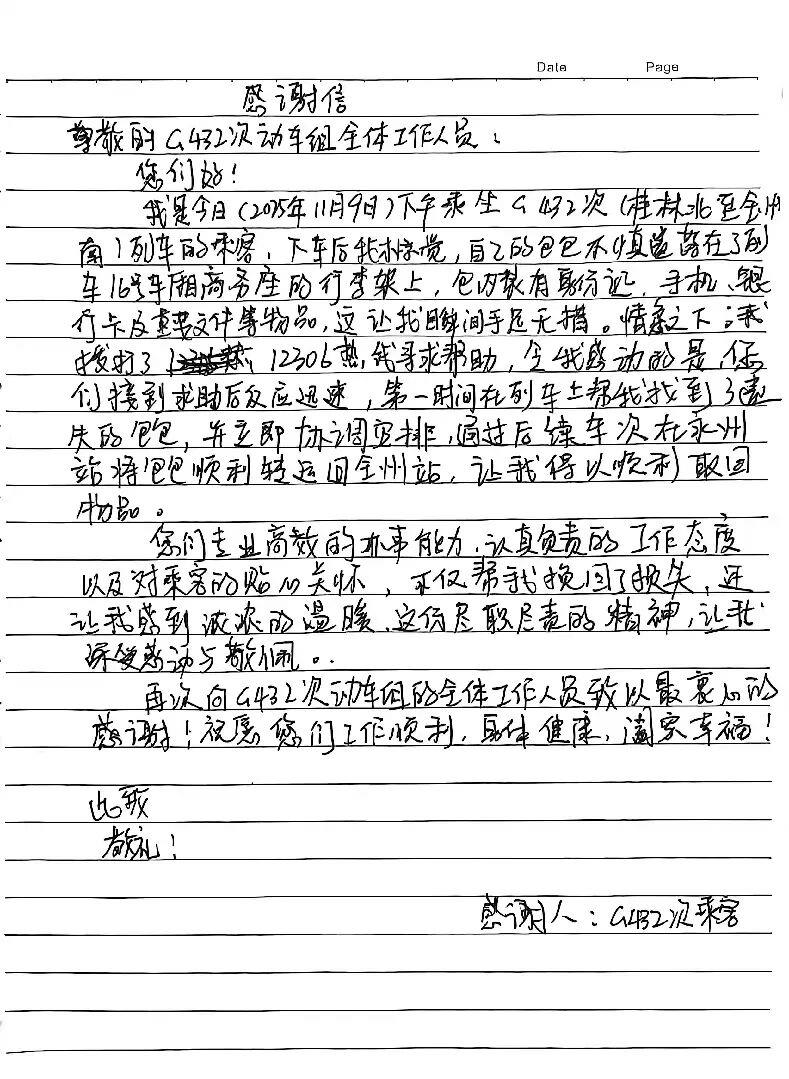 Date Page
感谢信
尊敬的G432次动车组全体工作人员：
您们好！
我是今日（2025年11月9日）下午乘坐G432次（桂林北至全州
南）列车的乘客，下车后我才惊觉，自己的包包不慎遗落在了列
车16号车厢商务座的行李架上，包内装有身份证、手机、银
行卡及重要文件等物品，这让我瞬间手足无措。情急之下，我
拨打了 12306热线寻求帮助，令我感动的是，你
们接到求助后反应迅速，第一时间在列车上帮我找到了遗
失的包包，并立即协调安排，通过后续车次在永州
站将包包顺利转运回全州站，让我得以顺利取回
物品。
您们专业高效的办事能力、认真负责的工作态度
以及对乘客的贴心关怀，不仅帮我挽回了损失，还
让我感到浓浓的温暖，这份尽职尽责的精神，让我
深受感动与敬佩。
再次向G432次动车组的全体工作人员致以最衷心的
感谢！祝愿您们工作顺利，身体健康，阖家幸福！
此致
敬礼！
感谢人：G432次乘客